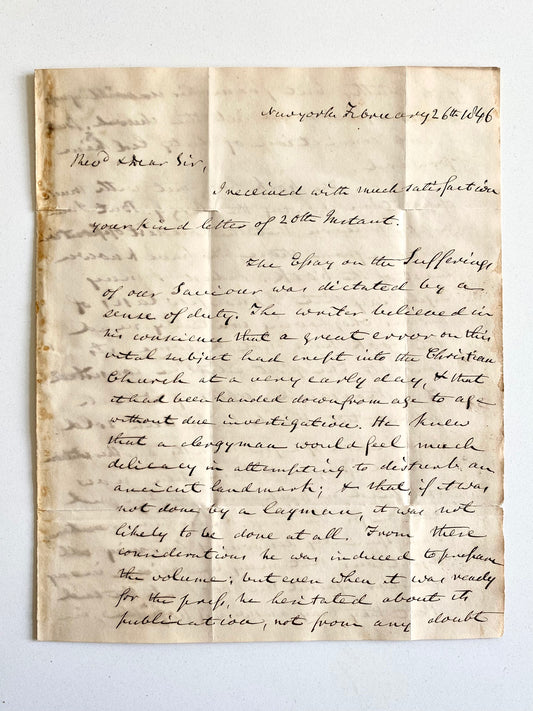 New York February 26th 1846
Revd & Dear Sir,
I received with much satisfaction
your kind letter of 20th Instant.
The Essay on the Sufferings
of our Saviour was dictated by a
sense of duty. The writer believed in
his conscience that a great error on this
vital subject had crept into the Christian
Church at a very early day, & that
it had been handed down from age to age
without due investigation. He knew
that a clergyman would feel much
delicacy in attempting to disturb an
ancient landmark; & that if it was
not done by a layman, it was not
likely to be done at all. From these
considerations he was induced to prepare
the volume; but even when it was ready
for the press, he hesitated about its
publication, not from any doubt